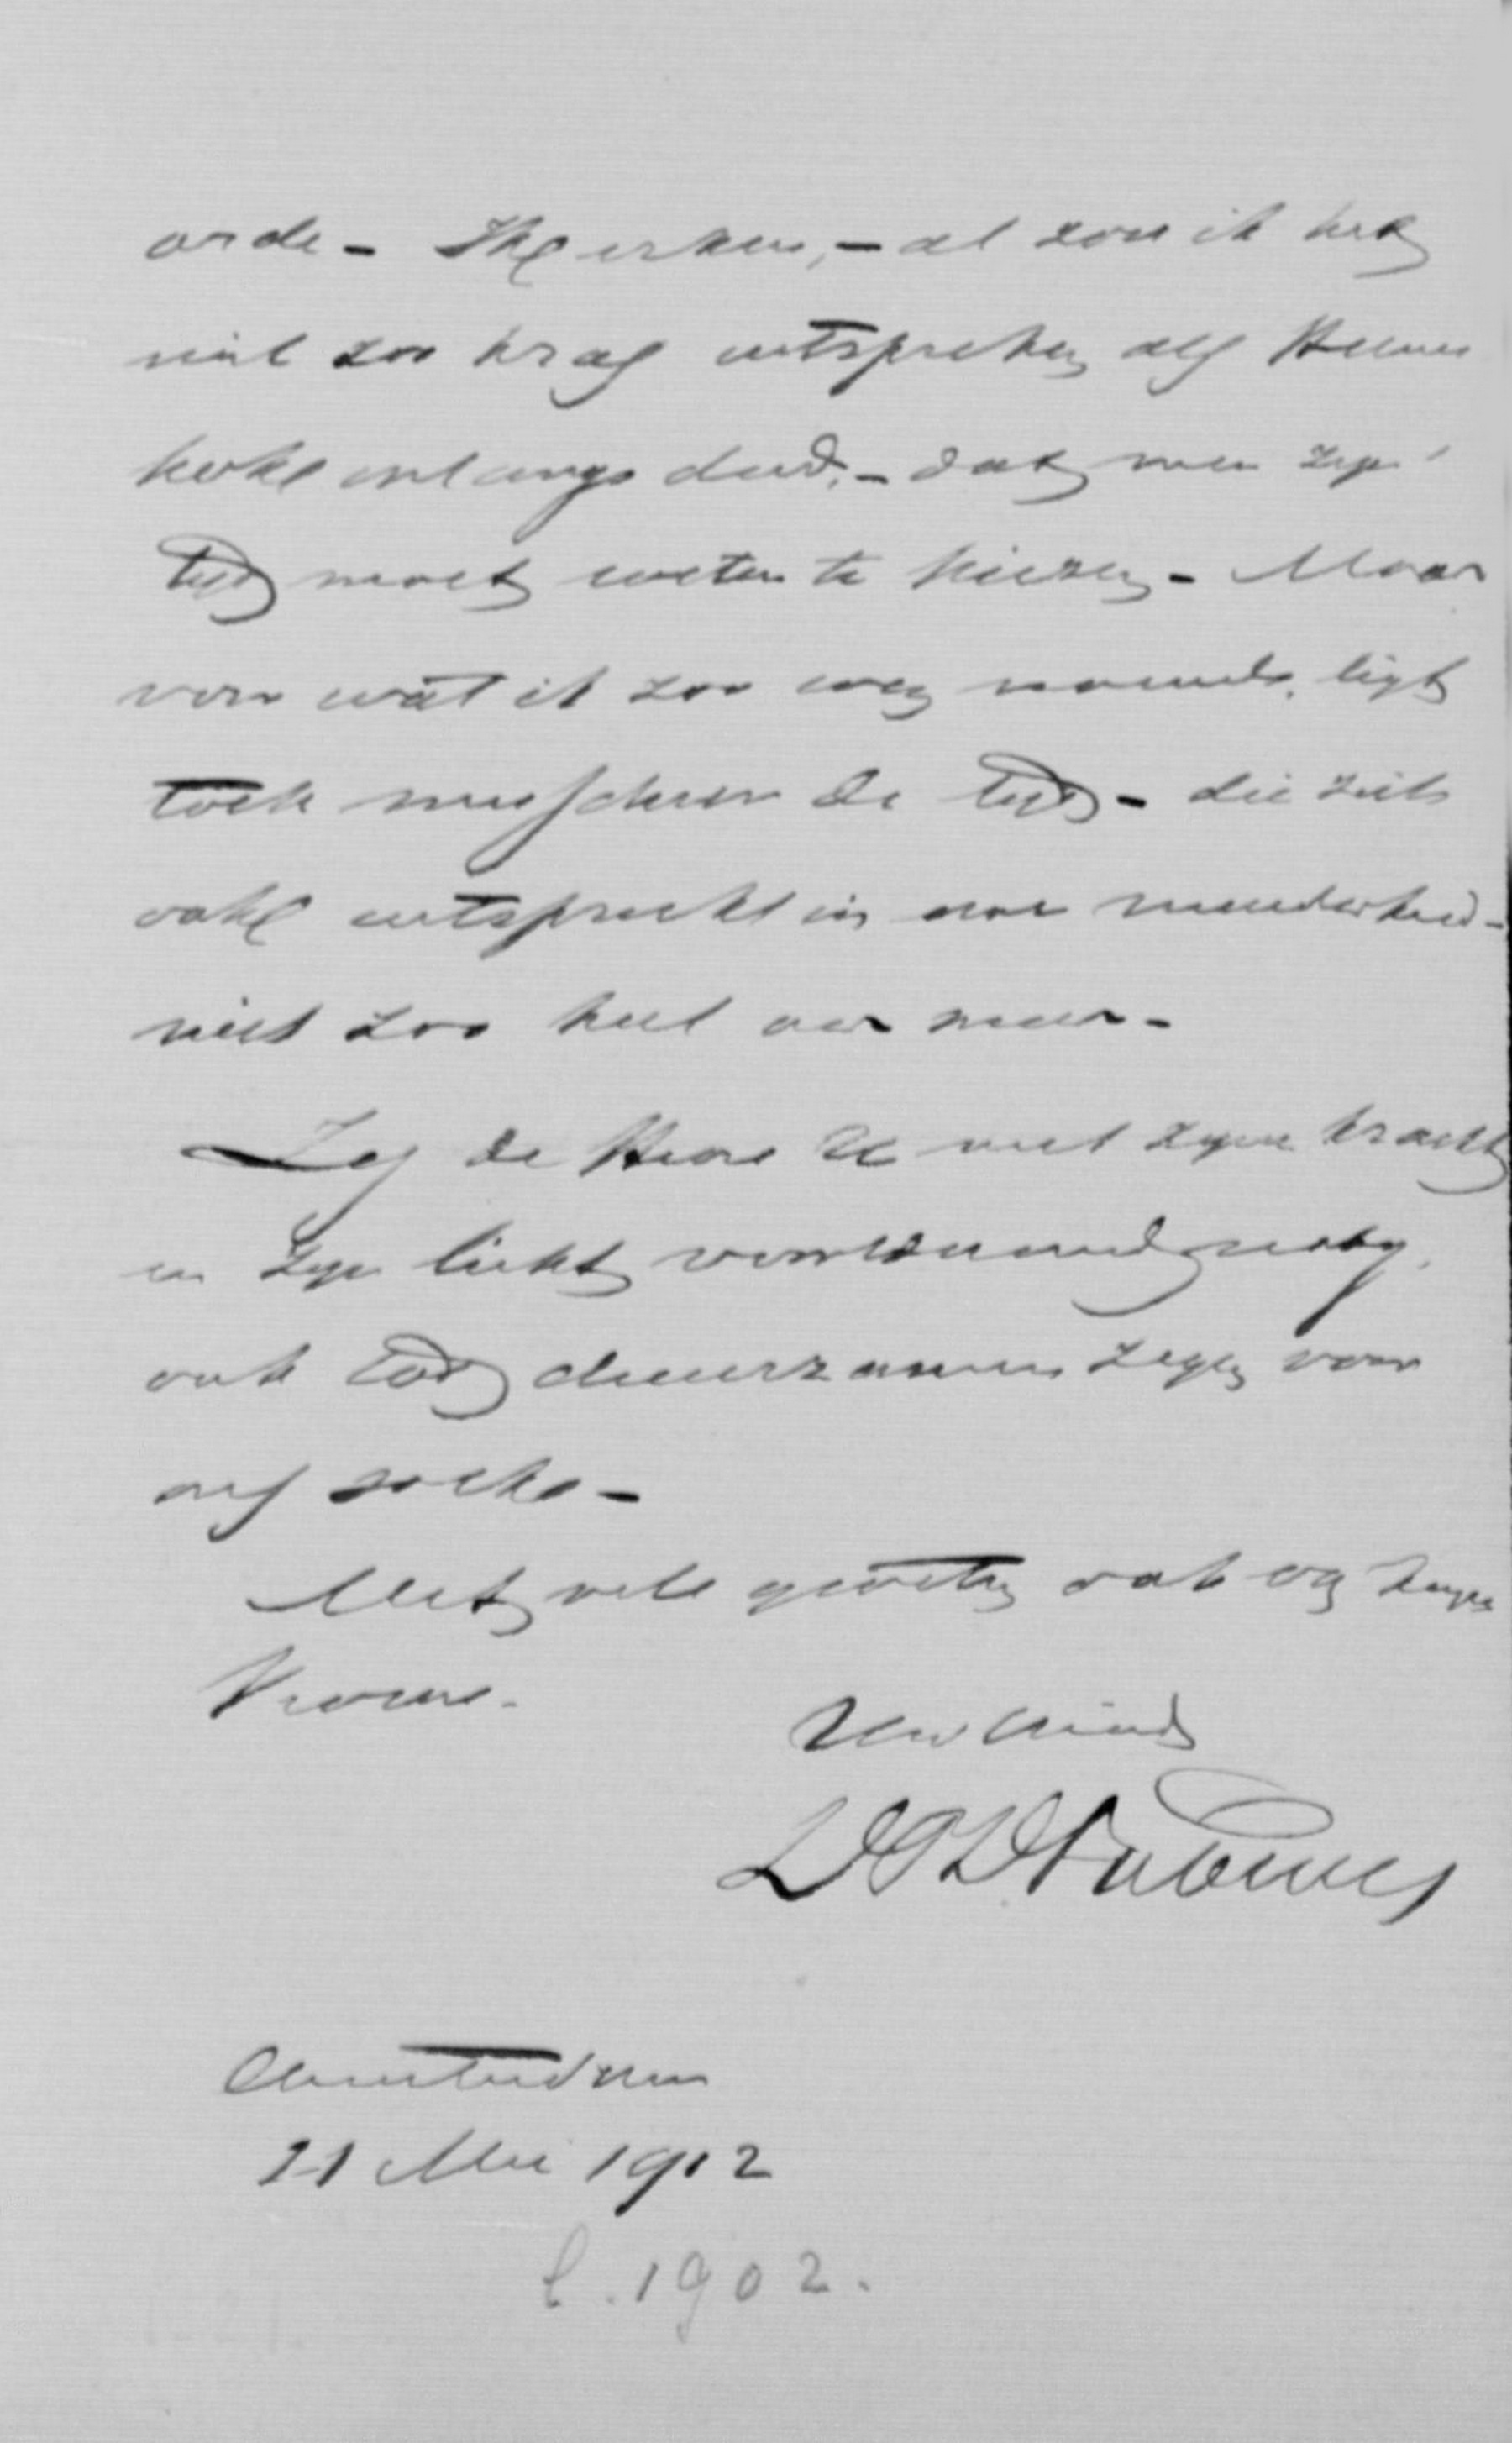 orde - Ik erken, - al zou ik het
niet zoo kras uitspreken als Heems
kerk onlangs deed, - dat men zijn
tijd moet weten te kiezen - Maar
voor wat ik zoo even noemde, ligt
toch misschien de tijd - die zich
ook uitspreekt in onze minderheid -
niet zoo heel ver meer -
Zij de Heere U met zijne kracht
en zijn licht voortdurend nabij,
ook tot duurzamen zegen voor
ons volk -
Met vele groeten ook van
Vrouw -
Uw vriend
Amsterdam
21 Mei 1912
l. 1902.